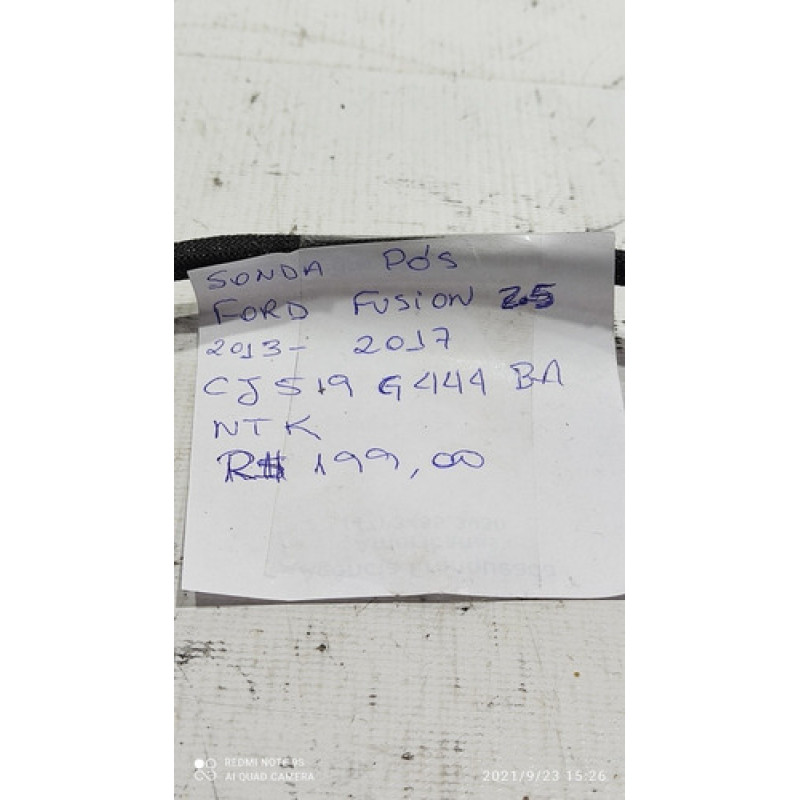 SONDA PÓS
FORD FUSION 2.5
2013 - 2017
CJ519 G444 BA
NTK
R$ 199,00
REDMI NOTE 9S
AI QUAD CAMERA
2021/9/23 15:26